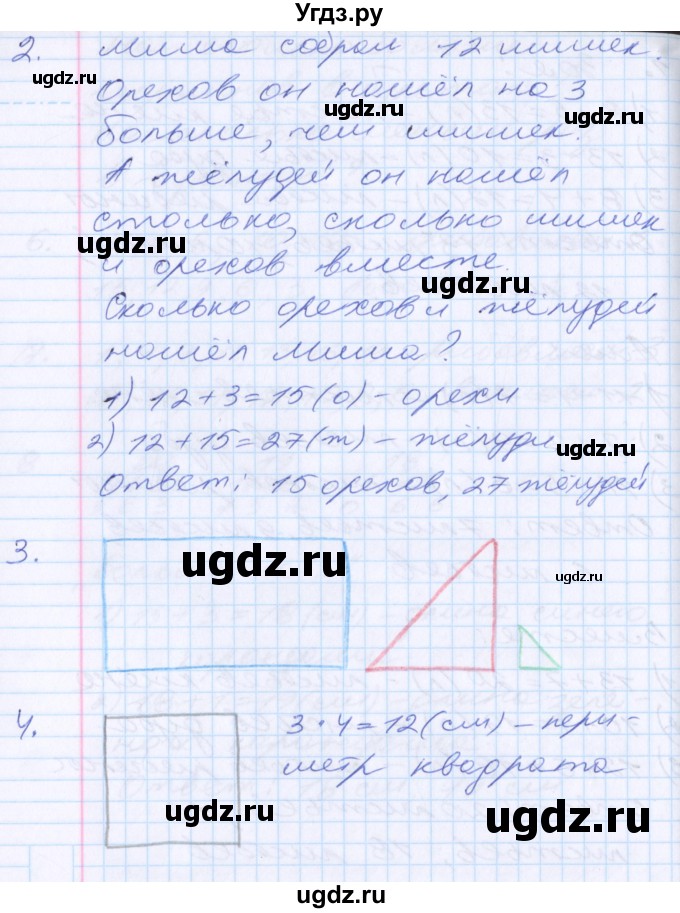 Угдз.ру
2. Миша собрал 12 шишек.
Орехов он нашёл на 3
больше, чем шишек.
А жёлудей он нашёл
столько, сколько шишек
и орехов вместе.
Сколько орехов и жёлудей
нашёл Миша?
1) 12+3=15(о) - орехи
2) 12+15=27(ж) - жёлуди
Ответ: 15 орехов, 27 жёлудей
3.
4. 3·4=12(см) - пери-
метр квадрата
ugdz.ru
ugdz.ru
ugdz.ru
ugdz.ru
ugdz.ru
ugdz.ru
ugdz.ru
ugdz.ru
ugdz.ru
ugdz.ru
ugdz.ru